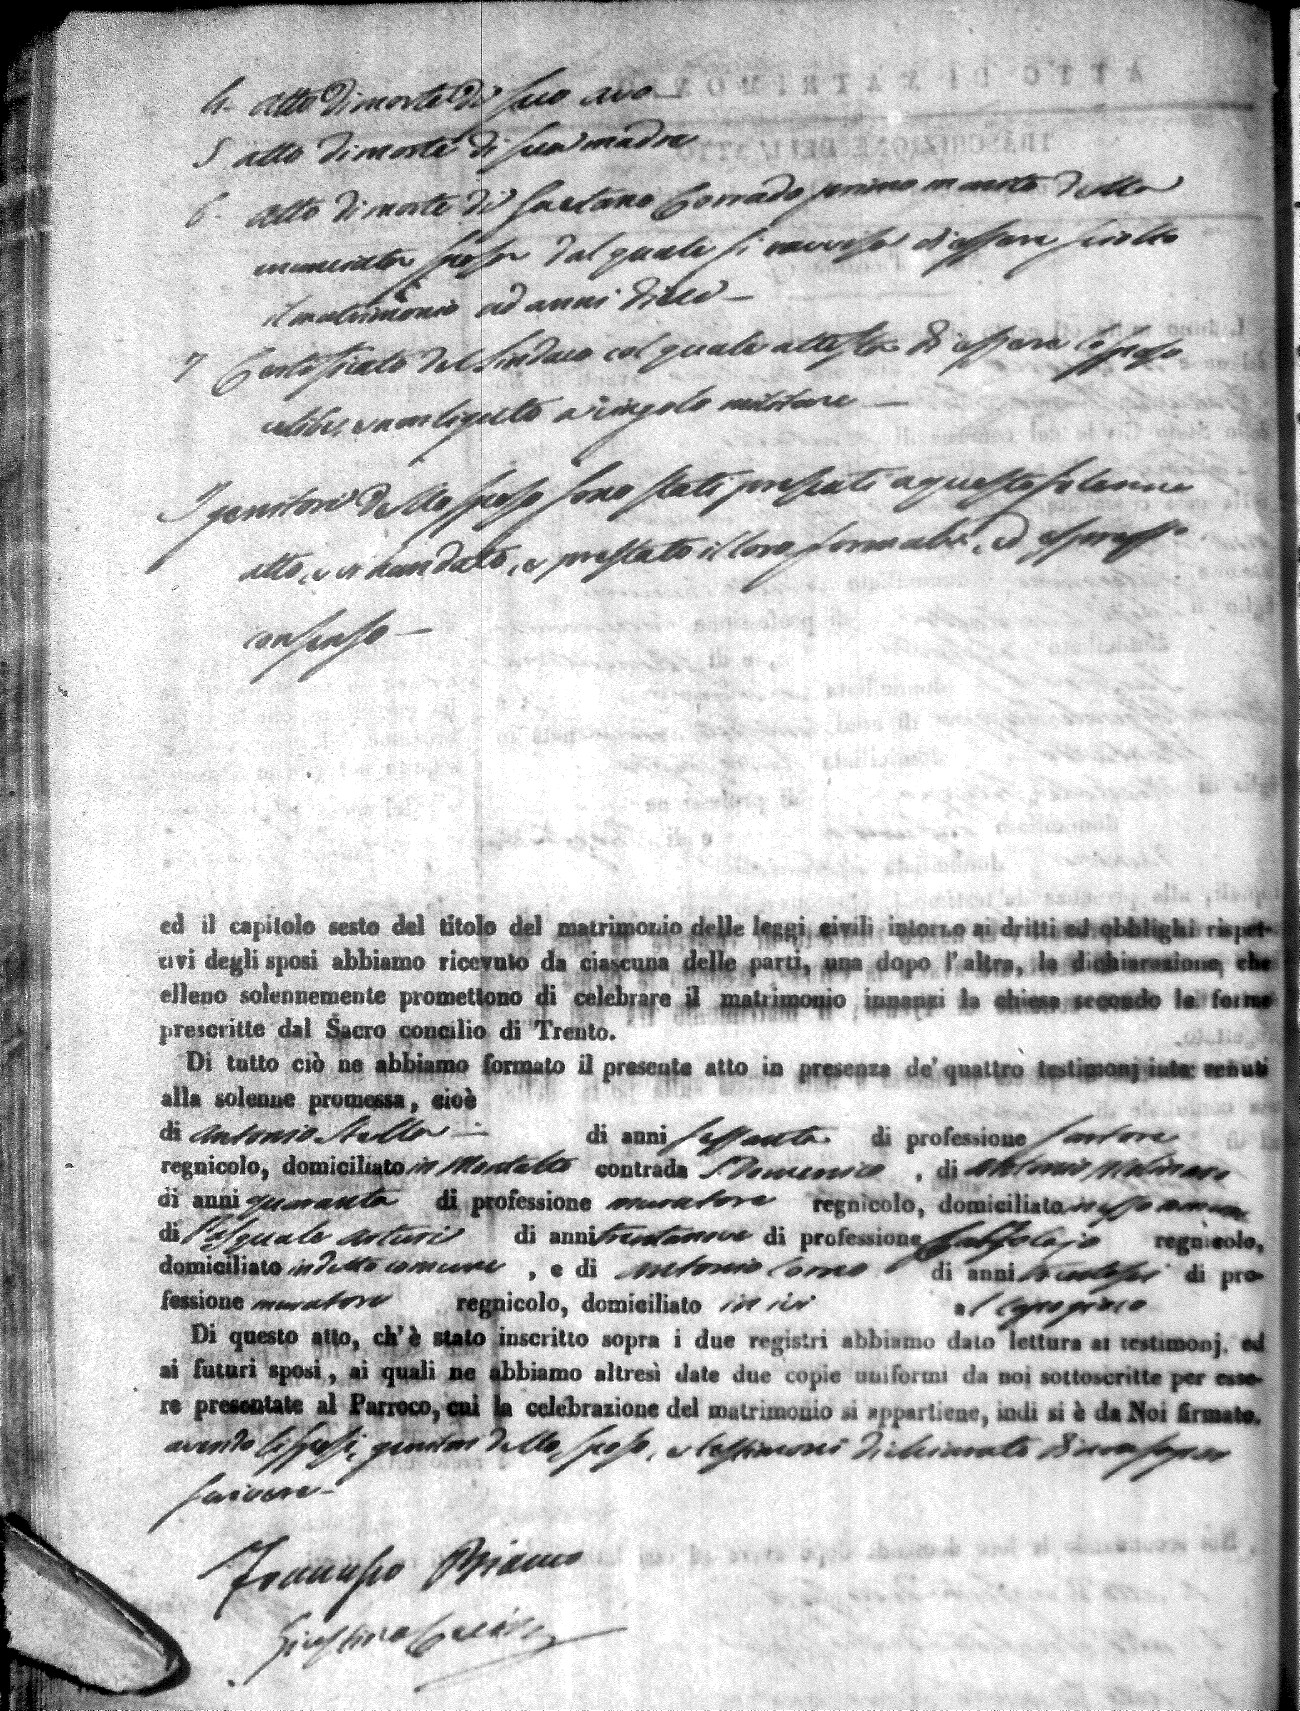 4. Atto di morte di suo avo
5 atto di morte di sua madre
6. atto di morte di Gaetano Corrado primo marito della
enunciata sposa dal quale si ravvisa d'essere sciolto
il matrimonio ad anni dieci
7 Certificato del Sindaco col quale attesta di essere lo sposo
celibe, e non ligato a vincolo militare
I genitori dello sposo sono stati presenti a questo solenne
atto, e vi han dato, e prestato il loro formale, ed espresso
consenso
ed il capitolo sesto del titolo del matrimonio delle leggi civili intorno ai dritti ed obblighi rispet-
tivi degli sposi abbiamo ricevuto da ciascuna delle parti, una dopo l'altra, la dichiarazione, che
elleno solennemente promettono di celebrare il matrimonio innanzi la chiesa secondo le forme
prescritte dal Sacro concilio di Trento.
Di tutto ciò ne abbiamo formato il presente atto in presenza de' quattro testimonj intervenuti
alla solenne promessa, cioè
di Antonio Stella di anni sessanta di professione sartore
regnicolo, domiciliato in Montalto contrada S. Domenico , di Antonio Molinaro
di anni quaranta di professione muratore regnicolo, domiciliato in esso comune
di Pasquale Arturi di anni trentanove di professione calzolajo regnicolo,
domiciliato in detto comune , e di Antonio di anni di pro-
fessione muratore regnicolo, domiciliato in ivi
Di questo atto, ch'è stato inscritto sopra i due registri abbiamo dato lettura ai testimonj, ed
ai futuri sposi, ai quali ne abbiamo altresì date due copie uniformi da noi sottoscritte per esse-
re presentate al Parroco, cui la celebrazione del matrimonio si appartiene, indi si è da Noi firmato.
avendo li sposi, genitori dello sposo, e testimoni dichiarato di non saper
scrivere
Francesco